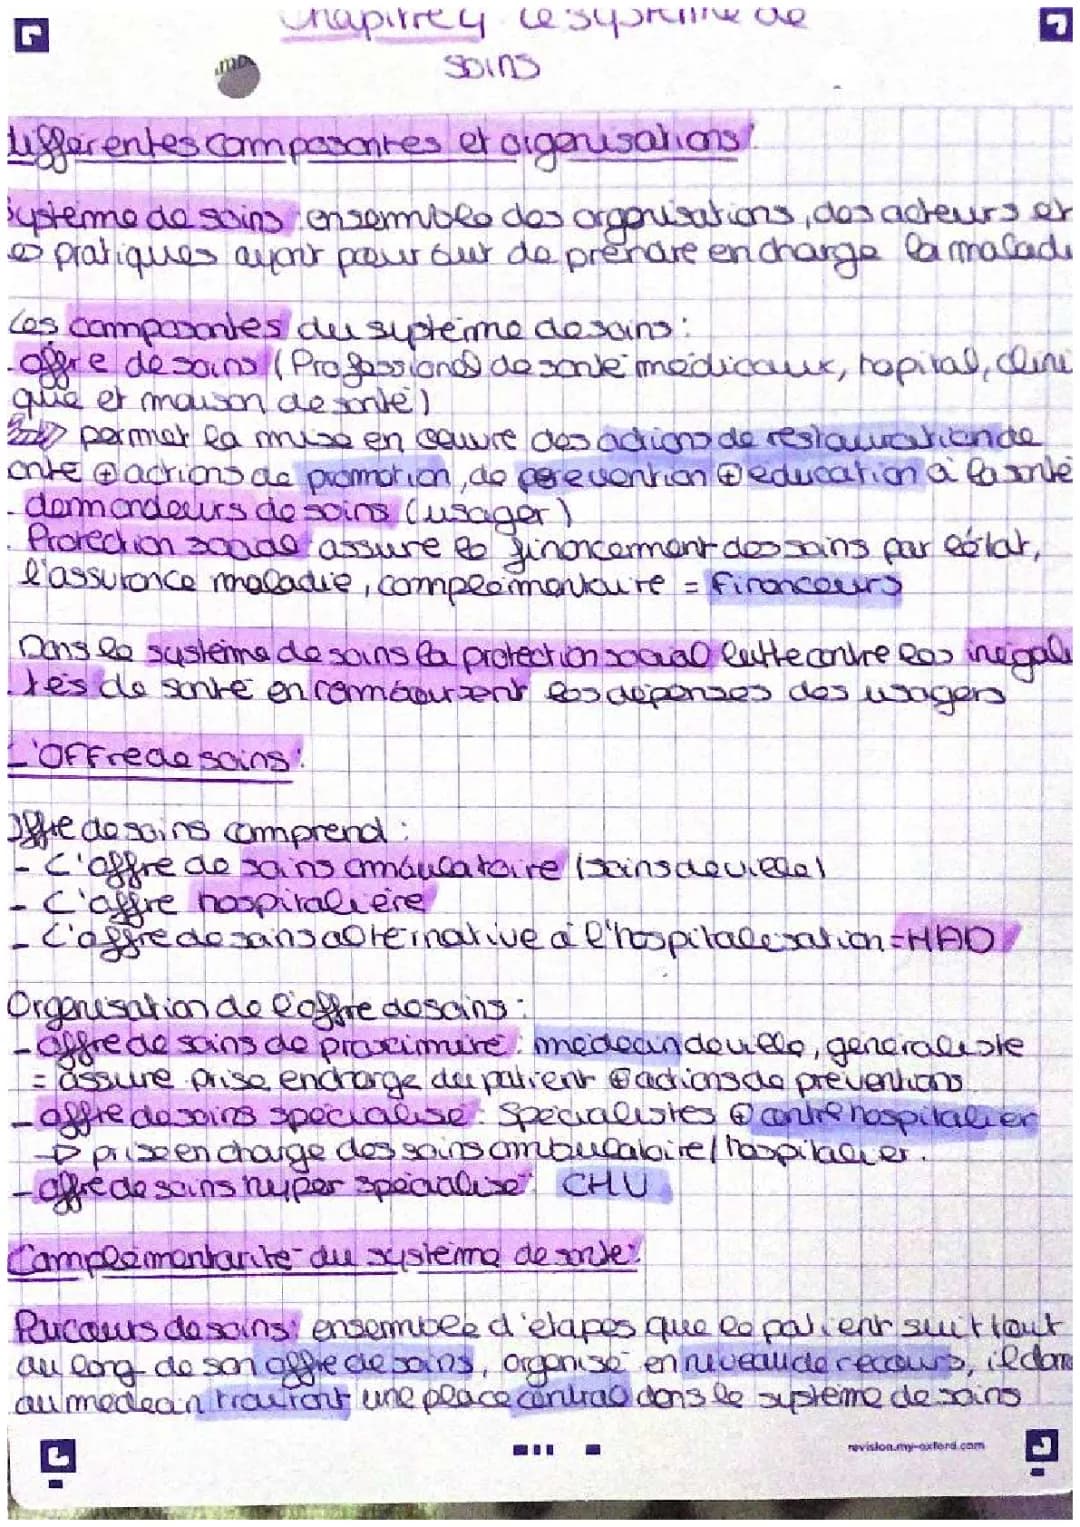 Chapitre 4 Le système de
soins
différentes composantes et organisations:
Système de soins: ensemble des organisations, des acteurs et
es pratiques ayant pour but de prendre en charge la maladi
Les composantes du système de soins:
- offre de soins (Professionel de santé médicaux, hopital, clini
que et maison de santé)
permet la mise en œuvre des actions de restauration de
anté ⊕ actions de promotion, de prévention ⊕ education à la santé
- demandeurs de soins (usager)
- Protection social assure le financement des soins par l'état,
l'assurance maladie, complémentaire = financeurs
Dans le système de soins la protection social lutte contre les inégali
tés de santé en remboursent les dépenses des usagers
L'Offre de soins:
Offre de soins comprend:
- L'offre de soins ambulatoire (soins de ville)
- L'offre hospitalière
- L'offre de soins alternative à l'hospitalisation = HAD
Organisation de l'offre de soins:
- offre de soins de proximité: médecin de ville, généraliste
= assure prise en charge du patient ⊕ actions de préventions
- offre de soins spécialisé: Spécialistes ⊕ centre hospitalier
→ prise en charge des soins ambulatoire / hospitalier.
- offre de soins hyper spécialisé: CHU
Complémentarité du système de santé:
Parcours de soins: ensemble d'étapes que le patient suit tout
au long de son offre de soins, organisé en niveau de recours, il donn
au médecin traitant une place central dans le système de soins
revision.my-oxford.com